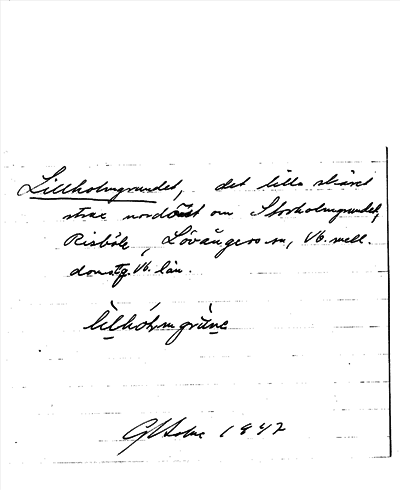 Lillholmgrundet, det lilla skäret
strax nordöst om Storholmgrundet,
Risböle, Lövångers sn, Vb. mell.
domstg. Vb. län.
lìlhólmgrùne
G Holm 1942